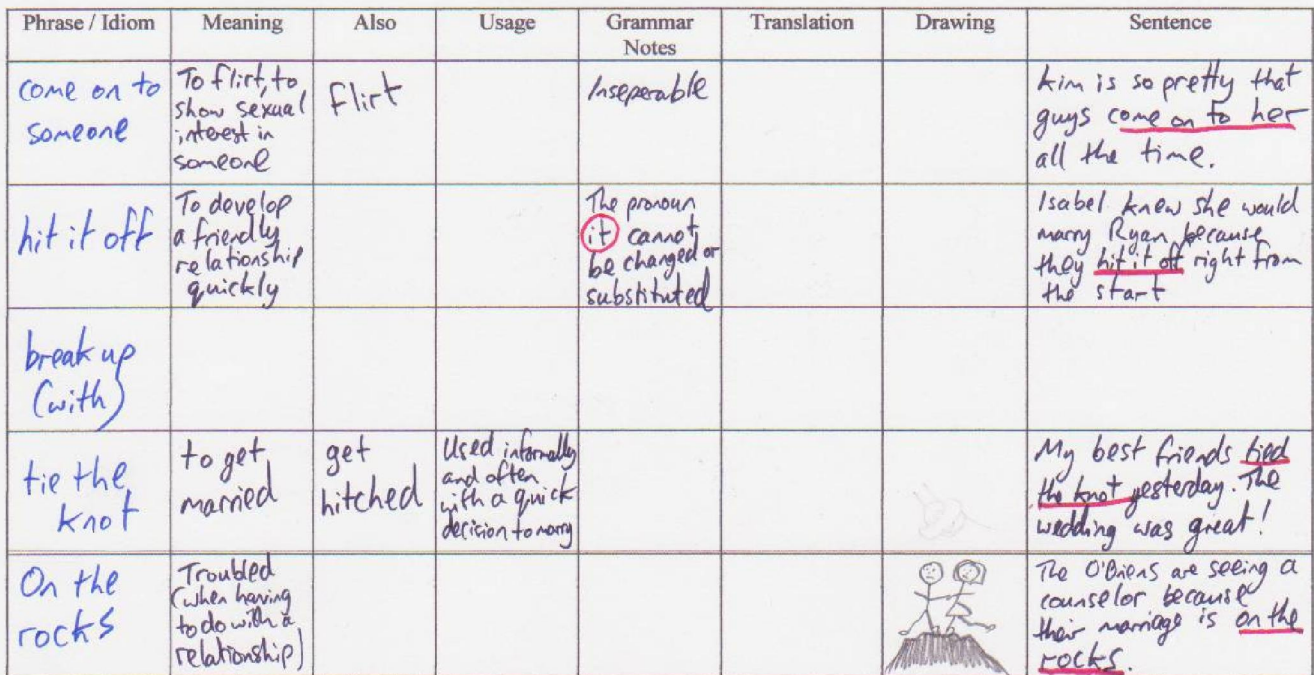 Phrase / Idiom
Meaning
Also
Usage
Grammar
Notes
Translation
Drawing
Sentence
come on to
someone
To flirt, to
show sexual
interest in
someone
flirt
Inseperable
Kim is so pretty that
guys come on to her
all the time.
hit it off
To develop
a friendly
relationship
quickly
The pronoun
it cannot
be changed or
substituted
Isabel knew she would
marry Ryan because
they hit it off right from
the start
break up
(with)
tie the
knot
to get
married
get
hitched
Used informally
and often
with a quick
decision to marry
My best friends tied
the knot yesterday. The
wedding was great!
On the
rocks
Troubled
(when having
to do with a
relationship)
The O'Briens are seeing a
counselor because
their marriage is on the
rocks.